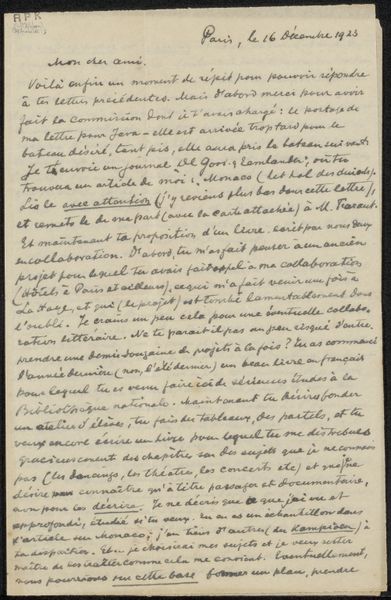 RPK
Paris, le 16 Décembre 1923
Mon cher ami.
Voilà enfin un moment de répit pour pouvoir répondre
à tes lettres précédentes. Mais d'abord merci pour avoir
fait la commission dont je t'avais chargé: le port de
ma lettre pour Java - elle est arrivée trop tard pour le
bateau désiré, tant pis, elle aura pris le bateau suivant.
Je t'envoie un journal De Gooi- & Eemlander, où tu
trouveras un article de moi: Monaco (het hol des duivels).
Lis le avec attention (j'y reviens plus bas dans cette lettre),
et remets le de ma part (avec la carte attachée) à M.
Et maintenant ta proposition d'un livre, écrit par nous deux
en collaboration. D'abord, tu m'as fait penser à un ancien
projet pour lequel tu avais fait appel à ma collaboration
(Hôtels à Paris et ailleurs), ce qui m'a fait venir une fois à
La Haye, et qui (le projet) est tombé lamentablement dans
l'oubli. Je crains un peu cela pour une éventuelle collabo-
ration littéraire. Ne te parait-il pas un peu risqué d'entre-
prendre une demi-douzaine de projets à la fois? Tu as commencé
l'année dernière (non, l'été dernier) un beau livre en français
pour lequel tu es venu faire ici de sérieuses études à la
Bibliothèque nationale. Maintenant tu désires fonder
un atelier d'élèves, tu fais des tableaux, des pastels, et tu
veux encore écrire un livre pour lequel tu me distribues
gracieusement des chapitres sur des sujets que je ne connais
pas (les dancings, les théatres, les concerts etc) et que je ne
désire connaître qu'à titre passager et documentaire,
non pour les décrire. Je ne décris que ce que j'ai vu et
approfondi, étudié si tu veux. Tu en as un échantillon dans
l'article sur Monaco; j'en tiens d'autres (du Kampioen) à
ta disposition. Et je choisirai mes sujets et je veux rester
maître de les traiter comme cela me convient. Eventuellement,
nous pourrions sur cette base former un plan, prendre